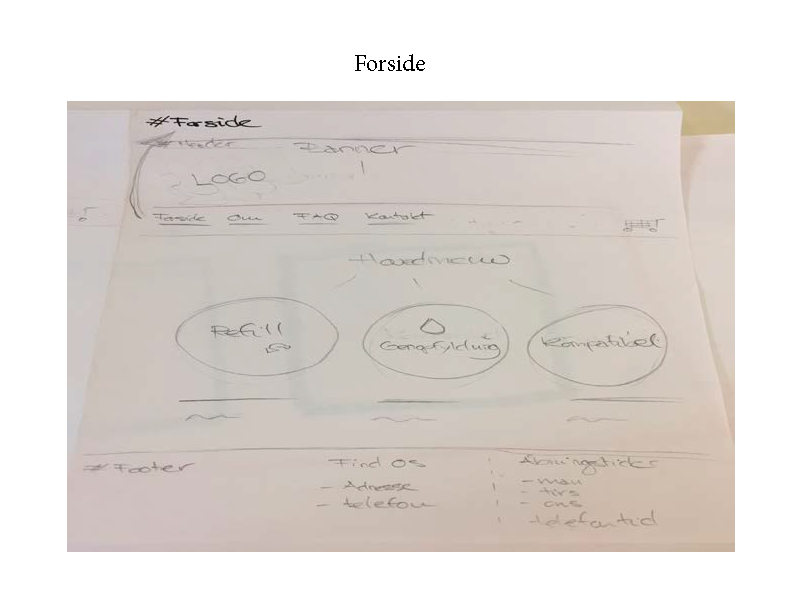 Forside
#Forside
#Header Banner
LOGO
Forside Om FAQ Kontakt
Hovedmenu
Refill Genopfyldning Kompatibel
#Footer Find Os Åbningstider
- Adresse - man
- telefon - tirs
- ons
telefontid